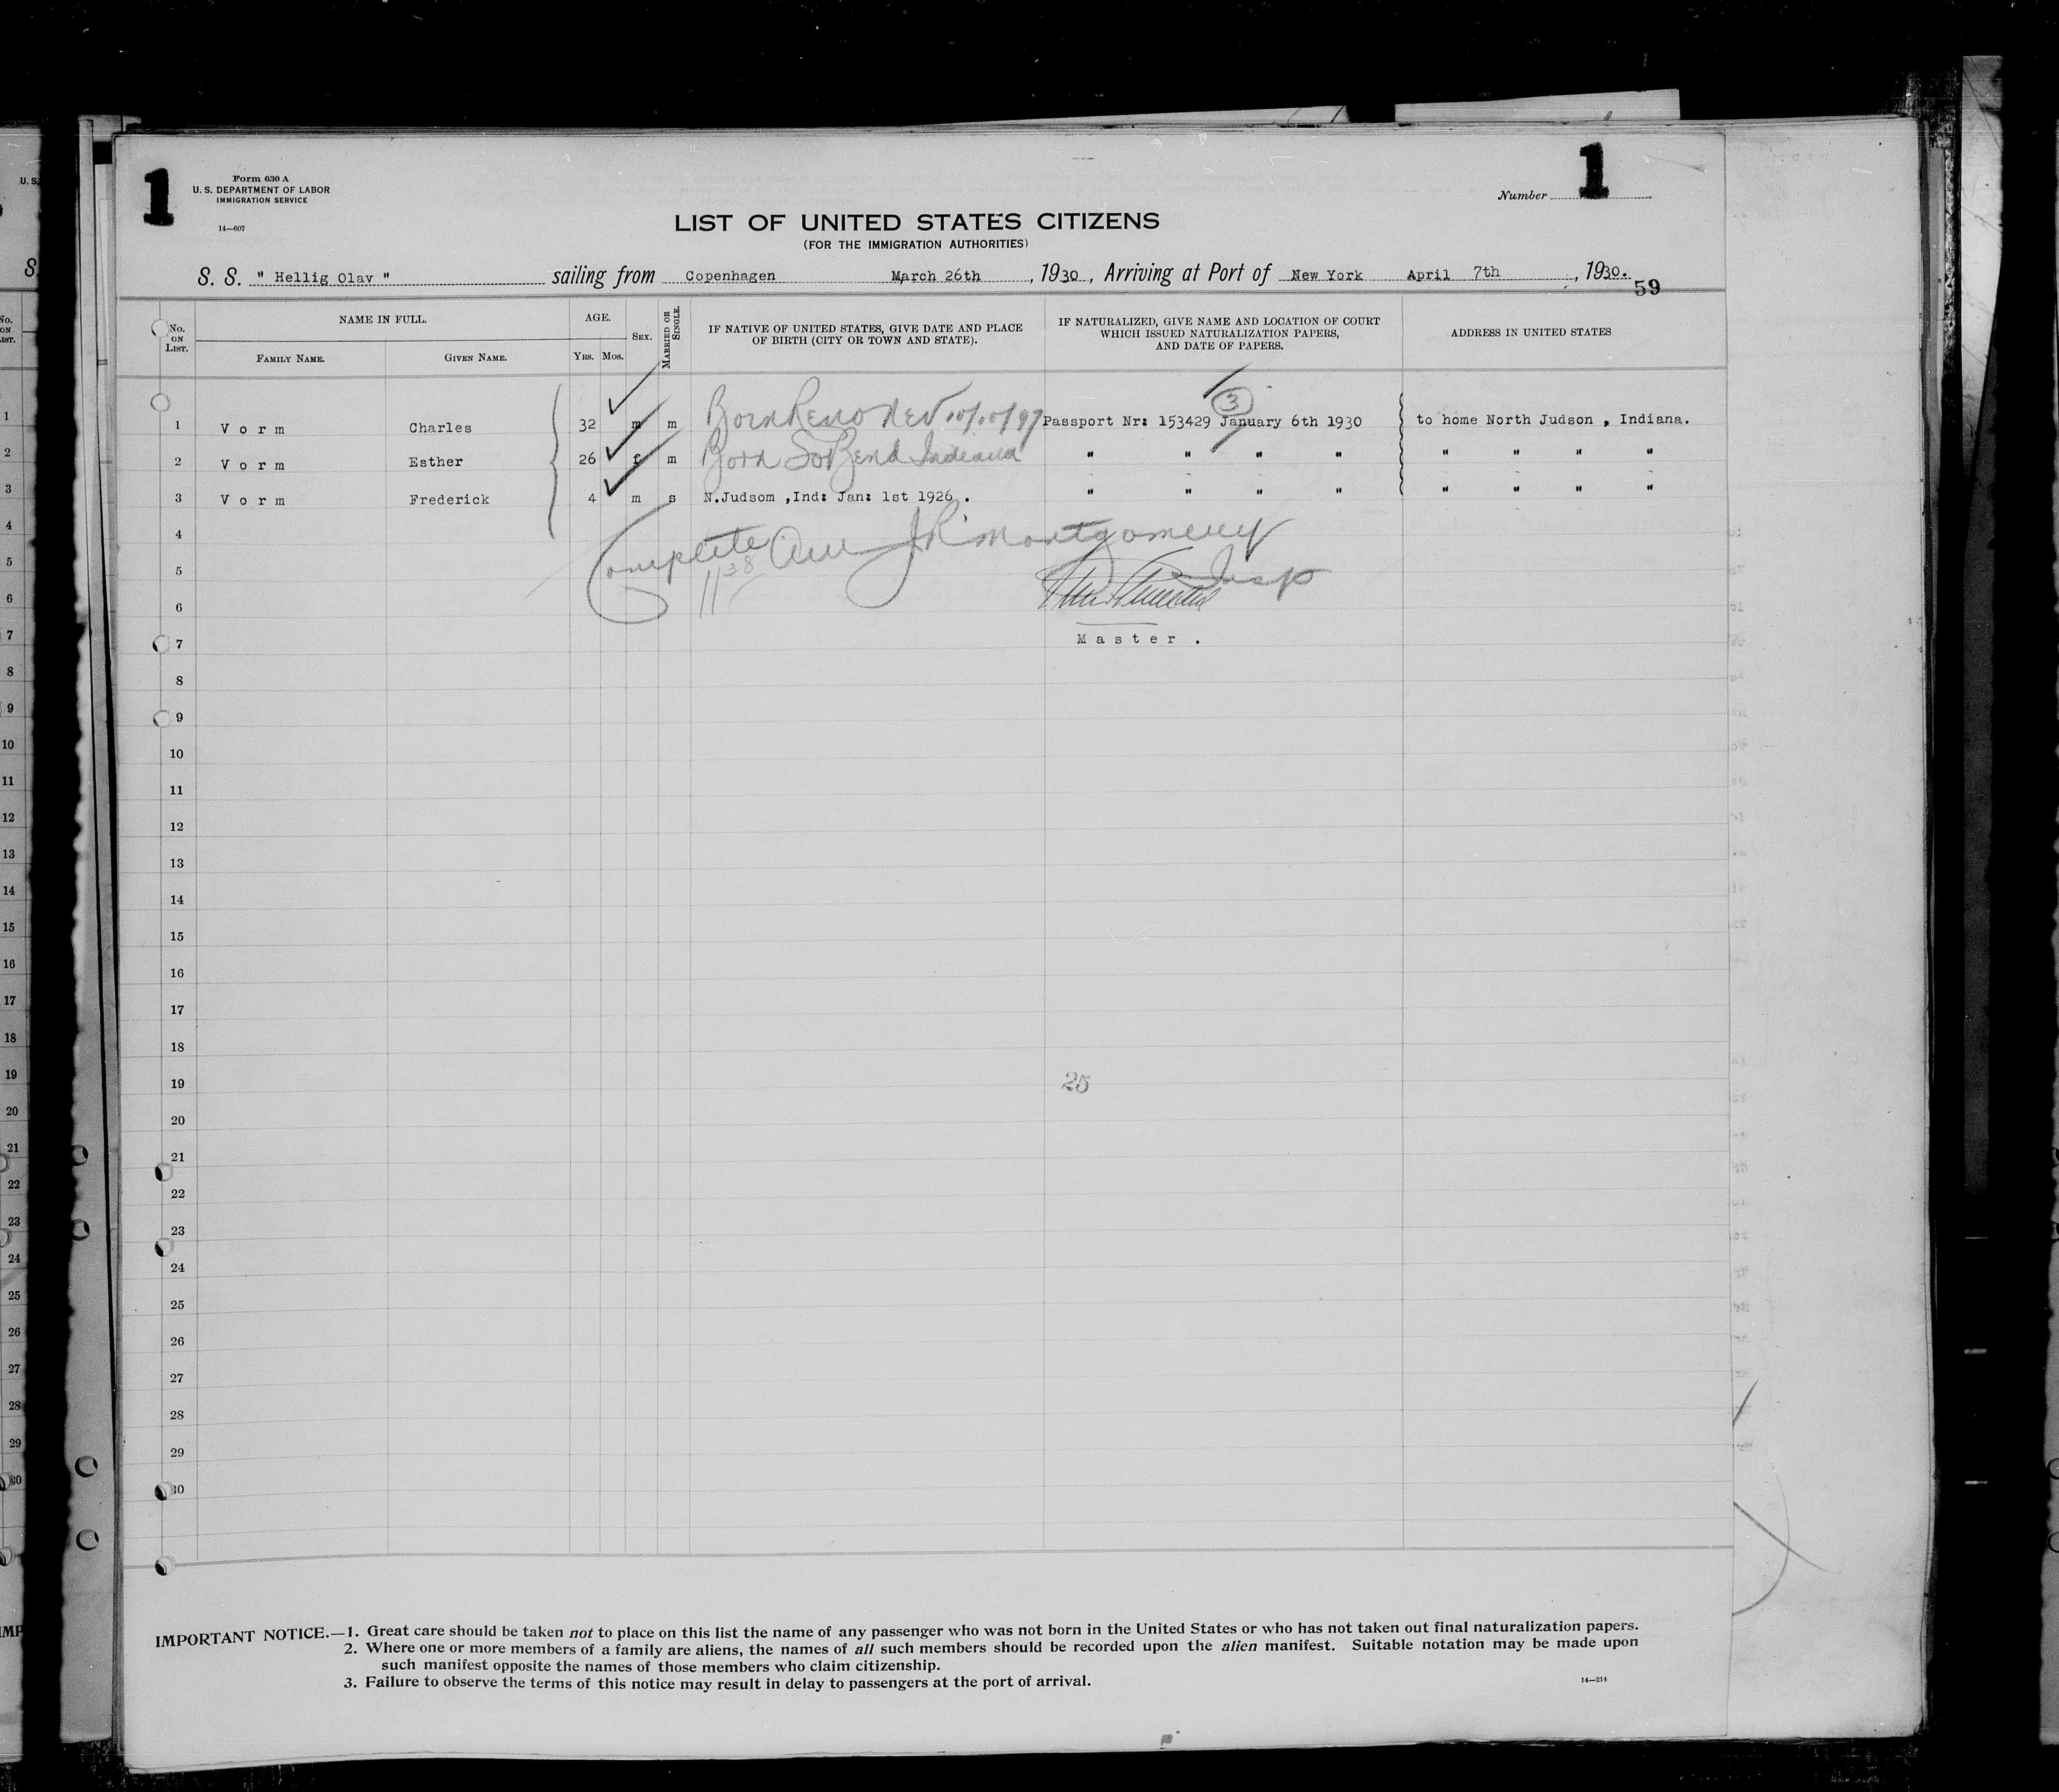 1
Form 630 A
U. S. DEPARTMENT OF LABOR
IMMIGRATION SERVICE
14—607
Number 1
LIST OF UNITED STATES CITIZENS
(FOR THE IMMIGRATION AUTHORITIES)
S. S. " Hellig Olav " sailing from Copenhagen March 26th , 1930 , Arriving at Port of New York April 7th , 1930.
59
No. ON LIST. NAME IN FULL. AGE. SEX. MARRIED OR SINGLE. IF NATIVE OF UNITED STATES, GIVE DATE AND PLACE OF BIRTH (CITY OR TOWN AND STATE). IF NATURALIZED, GIVE NAME AND LOCATION OF COURT WHICH ISSUED NATURALIZATION PAPERS, AND DATE OF PAPERS. ADDRESS IN UNITED STATES
FAMILY NAME. GIVEN NAME. YRS. MOS.
3
1 Vorm Charles 32 m m Born Reno Nev 10/10/97 Passport Nr: 153429 January 6th 1930 to home North Judson , Indiana.
2 Vorm Esther 26 f m Born So Bend Indiana " " " " " " " "
3 Vorm Frederick 4 m s N.Judsom ,Ind: Jan: 1st 1926 . " " " " " " " "
4
Complete JR Montgomery
5
1138 Insp
6
7 Master .
8
9
10
11
12
13
14
15
16
17
18
19 25
20
21
22
23
24
25
26
27
28
29
30
IMPORTANT NOTICE.—1. Great care should be taken not to place on this list the name of any passenger who was not born in the United States or who has not taken out final naturalization papers.
2. Where one or more members of a family are aliens, the names of all such members should be recorded upon the alien manifest. Suitable notation may be made upon
such manifest opposite the names of those members who claim citizenship.
3. Failure to observe the terms of this notice may result in delay to passengers at the port of arrival.
14—214